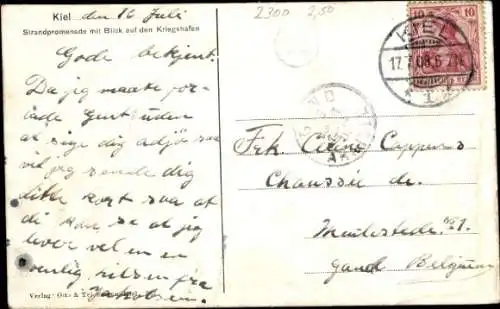 Kiel den 16 Juli
Strandpromenade mit Blick auf den Kriegshafen
2300 2,50
Gode bekjent.
Da jeg maatte for-
lade Gent uden
at sige dig adjø saa
vil jeg sende dig
dette kort saa at
du kan se at jeg
lever vel en en
venlig hilsen fra
Verlag: Otto &
10 10
KIEL
17.7.08.6-7N.
1
GAND
Frk
Cappens
Chaussée de
No 1.
Gand Belgium